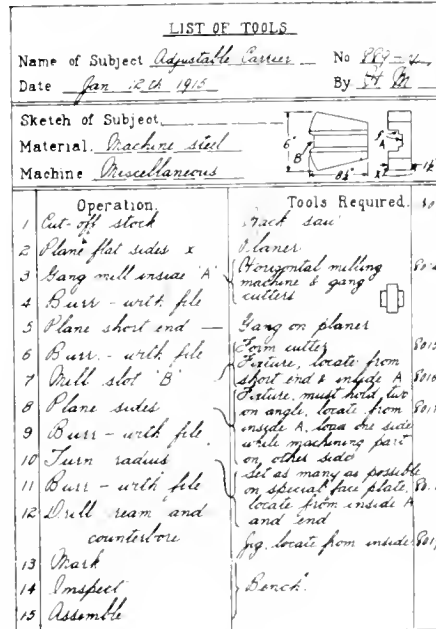 LIST OF TOOLS
Name of Subject Adjustable Carrier No
Date Jan 12th 1915 By
Sketch of Subject
Material Machine steel
Machine Miscellaneous
6" A B x
Operation. Tools Required.
1 Cut-off stock Hack saw
2 Plane flat sides x Planer
3 Gang mill inside "A" Horizontal milling
machine & gang
cutters
4 Burr - with file
5 Plane short end — Gang on planer
6 Burr - with file Form cutter
7 Mill slot "B" Fixture, locate from
short end & inside A
8 Plane sides Fixture, must hold two
on angle, locate from
inside A, load one side
while machining part
on other side
9 Burr - with file
10 Turn radius Set as many as possible
on special face plate,
locate from inside A
and end
11 Burr - with file
12 Drill ream and
counterbore Jig, locate from inside
13 Mark
14 Inspect Bench.
15 Assemble